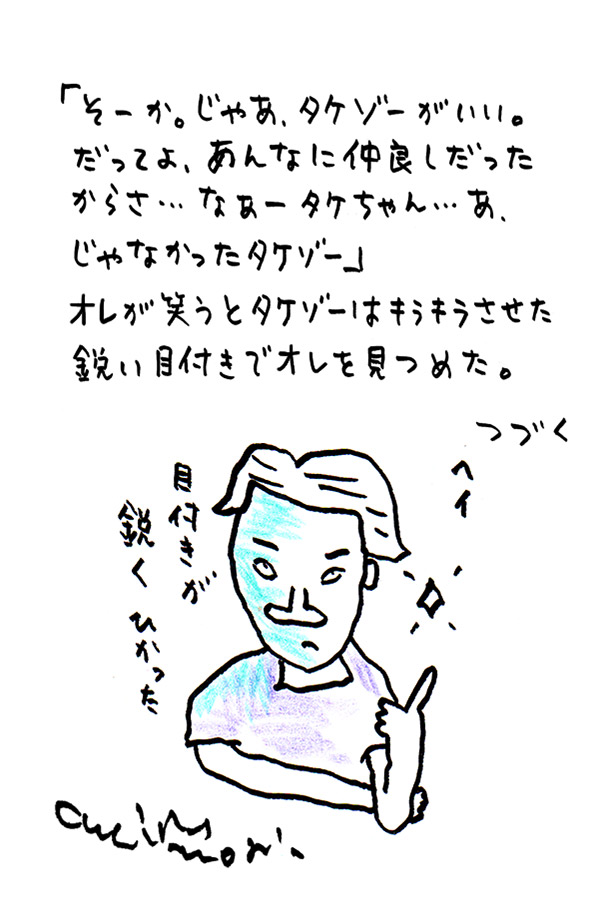 「そーか。じゃあ、タケゾーがいい。
だってよ、あんなに仲良しだった
からさ…なぁータケちゃん…あ、
じゃなかったタケゾー」
オレが笑うとタケゾーはキラキラさせた
鋭い目付きでオレを見つめた。
つづく
ヘイ
目付きが
鋭く ひかった